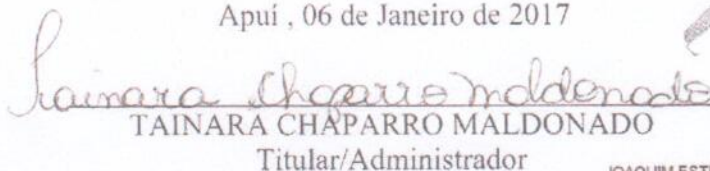 Apuí , 06 de Janeiro de 2017
Tainara Chaparro Maldonado
TAINARA CHAPARRO MALDONADO
Titular/Administrador
JOAQUIM EST